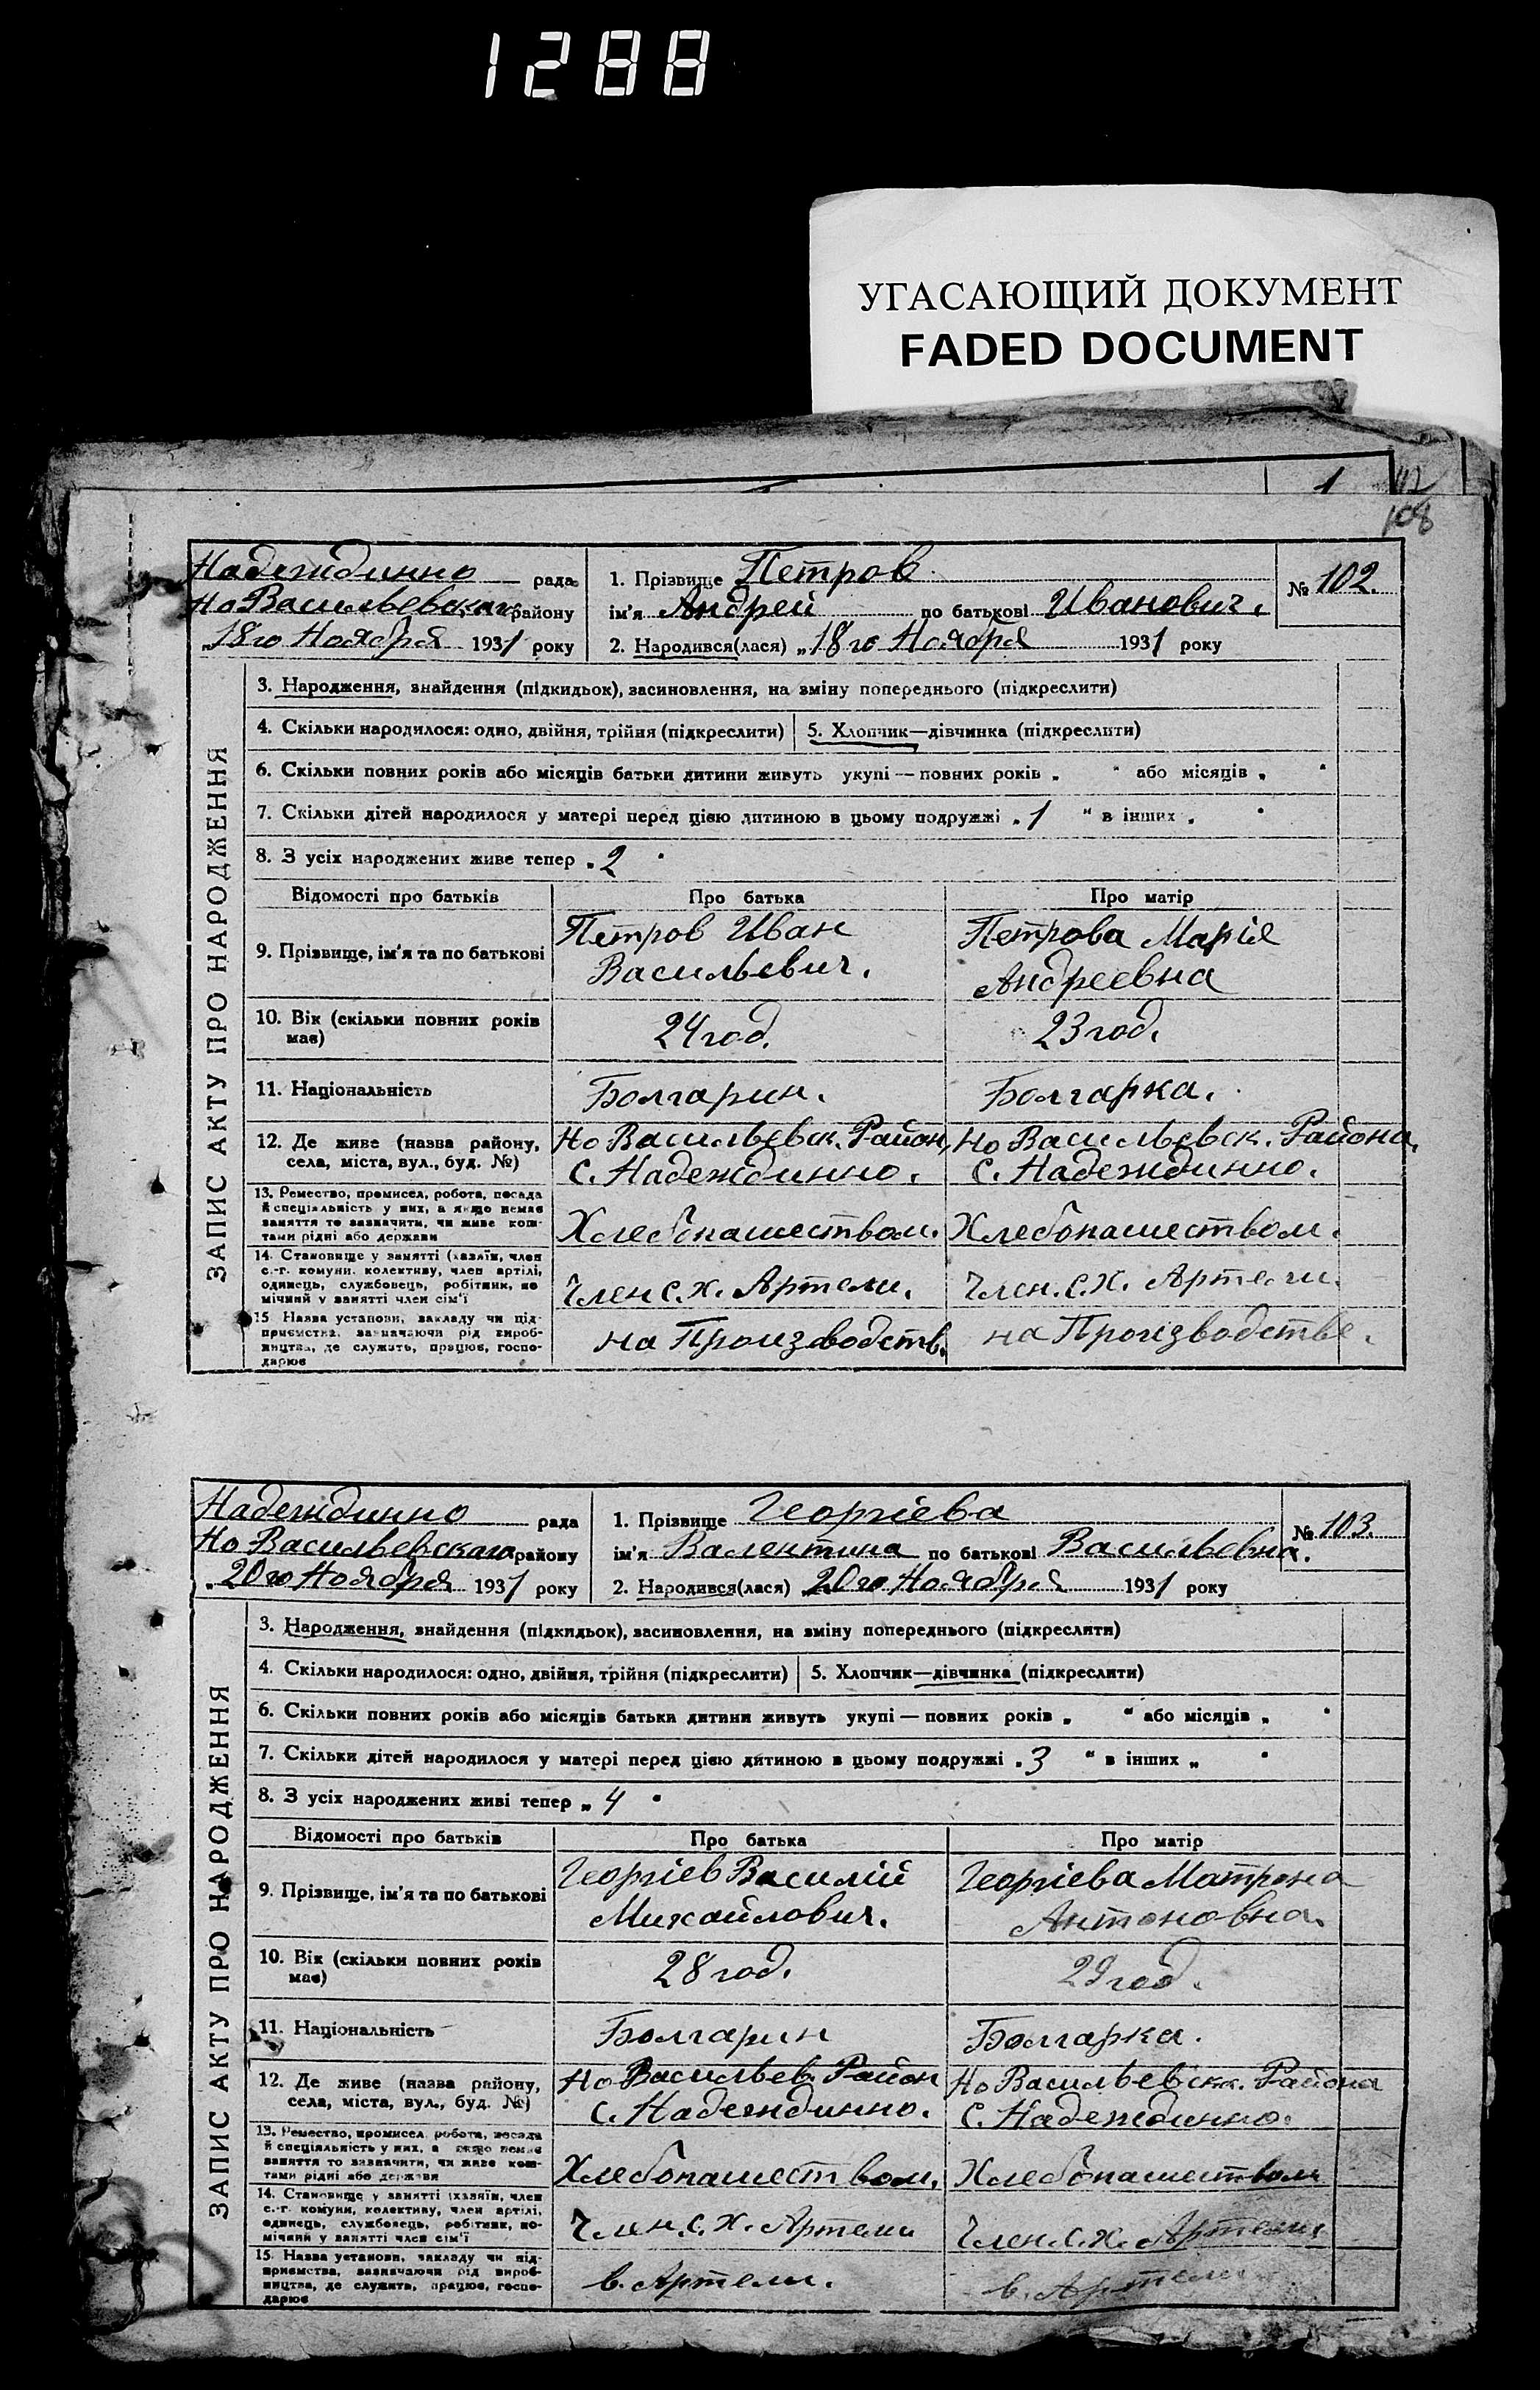 1288
УГАСАЮЩИЙ ДОКУМЕНТ
FADED DOCUMENT
1
112
108
Надеждинно рада
Но Васильевскаго району
„18го Ноября 1931 року
1. Прізвище Петров
ім'я Андрей по батькові Иванович.
№ 102.
2. Народився(лася) „18го Ноября 1931 року
ЗАПИС АКТУ ПРО НАРОДЖЕННЯ
3. Народження, знайдення (підкидьок), засиновлення, на зміну попереднього (підкреслити)
4. Скільки народилося: одно, двійня, трійня (підкреслити) 5. Хлопчик—дівчинка (підкреслити)
6. Скільки повних років або місяців батьки дитини живуть укупі — повних років „ “ або місяців „ “
7. Скільки дітей народилося у матері перед цією дитиною в цьому подружжі „1 “ в інших „ “
8. З усіх народжених живе тепер „2 “
Відомості про батьків Про батька Про матір
9. Прізвище, ім'я та по батькові
Петров Иван
Васильевич.
Петрова Марія
Андреевна
10. Вік (скільки повних років
має)
24 год.
23 год.
11. Національність
Болгарин.
Болгарка.
12. Де живе (назва району,
села, міста, вул., буд. №)
Но Васильевск. Район,
С. Надеждинно.
Но Васильевск. Района,
С. Надеждинно.
13. Ремество, промисел, робота, посада
й спеціяльність у них, а якщо немає
заняття то зазначити, чи живе кош-
тами рідні або держави
Хлебопашеством.
Хлебопашеством.
14. Становище у занятті (хазяїн, член
с.-г. комуни, колективу, член артілі,
одинець, службовець, робітник, по-
мічний у занятті член сім'ї
Член С. х. Артели.
Член. С. Х. Артели.
15 Назва установи, закладу чи під-
приємства, зазначаючи рід вироб-
ництва, де служить, працює, госпо-
дарює
на Производств.
на Производстве.
Надеждинно рада
Но Васильевскаго району
„20го Ноября 1931 року
1. Прізвище Георгіева
ім'я Валентина по батькові Васильевна.
№ 103.
2. Народився(лася) „20го Ноября 1931 року
ЗАПИС АКТУ ПРО НАРОДЖЕННЯ
3. Народження, знайдення (підкидьок), засиновлення, на зміну попереднього (підкреслити)
4. Скільки народилося: одно, двійня, трійня (підкреслити) 5. Хлопчик—дівчинка (підкреслити)
6. Скільки повних років або місяців батьки дитини живуть укупі — повних років „ “ або місяців „ “
7. Скільки дітей народилося у матері перед цією дитиною в цьому подружжі „3 “ в інших „ “
8. З усіх народжених живі тепер „4 “
Відомості про батьків Про батька Про матір
9. Прізвище, ім'я та по батькові
Георгіев Василій
Михайлович.
Георгіева Матрона
Антоновна.
10. Вік (скільки повних років
має)
28 год.
29 год.
11. Національність
Болгарин
Болгарка.
12. Де живе (назва району,
села, міста, вул., буд. №)
Но Васильев. Район
С. Надеждинно.
Но Васильевск. Района
С. Надеждинно.
13. Ремество, промисел, робота, посада
й спеціяльність у них, а якщо немає
заняття то зазначити, чи живе кош-
тами рідні або держави
Хлебопашеством.
Хлебопашеством
14. Становище у занятті (хазяїн, член
с.-г. комуни, колективу, член артілі,
одинець, службовець, робітник, по-
мічний у занятті член сім'ї
Член. С. Х. Артели
Член. С. х. Артели.
15. Назва установи, закладу чи під-
приємства, зазначаючи рід вироб-
ництва, де служить, працює, госпо-
дарює
в. Артели.
в. Артели